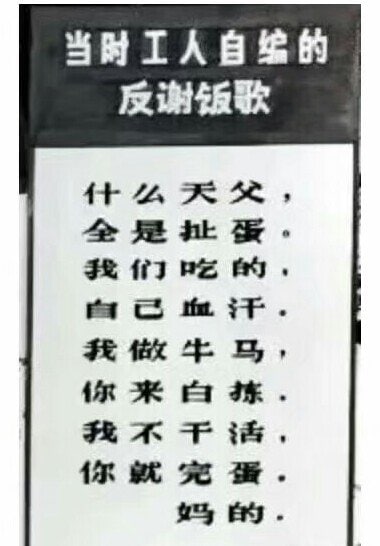 当时工人自编的
反谢饭歌
什么天父，
全是扯蛋。
我们吃的，
自己血汗．
我做牛马，
你来白拣．
我不干活，
你就完蛋．
妈的．